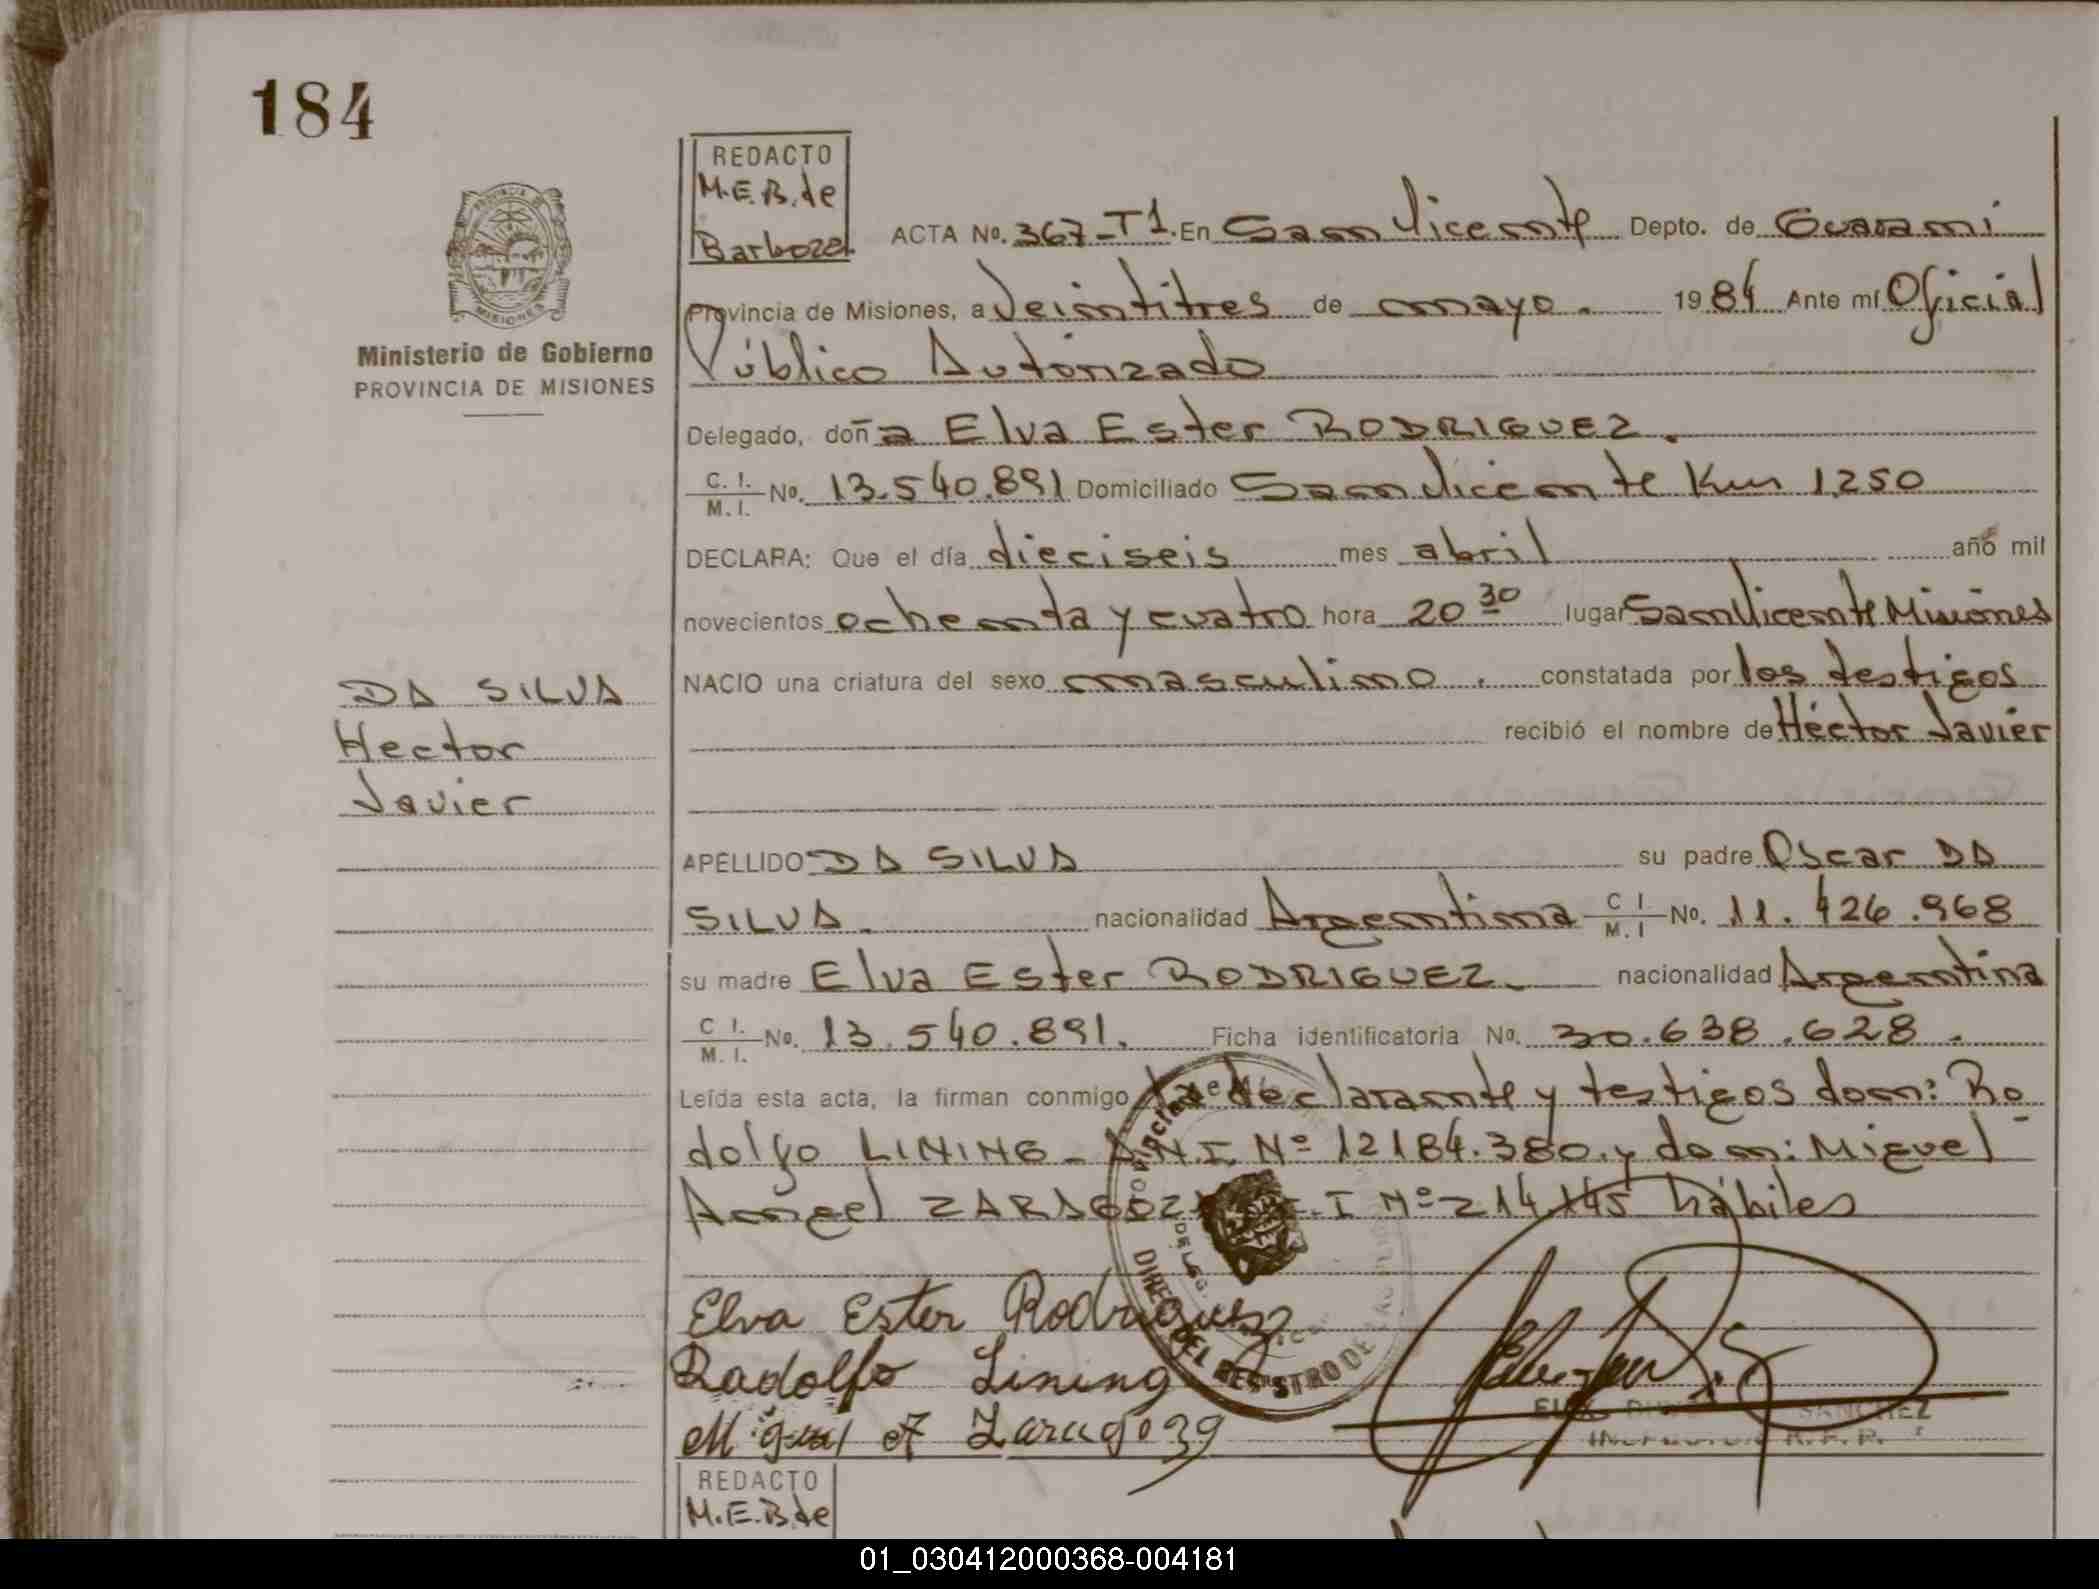 184
REDACTO
M.E.B. de
Barboza
ACTA No. 367-T1. En San Vicente Depto. de Guarani
Ministerio de Gobierno
PROVINCIA DE MISIONES
Provincia de Misiones, a Veintitres de mayo. 1984 Ante mí Oficial
Público Autorizado
Delegado, doña Elva Ester RODRIGUEZ.
C. I. / M. I. No. 13.540.891 Domiciliado San Vicente Km 1,250
DECLARA: Que el día dieciseis mes abril año mil
novecientos ochenta y cuatro hora 20 30 lugar San Vicente Misiones
NACIO una criatura del sexo masculino. constatada por los testigos
recibió el nombre de Héctor Javier
DA SILVA
Hector
Javier
APELLIDO DA SILVA su padre Oscar DA
SILVA. nacionalidad Argentina C I. / M. I No. 11.426.968
su madre Elva Ester RODRIGUEZ. nacionalidad Argentina
C I. / M. I. No. 13.540.891. Ficha identificatoria No. 30.638.628.
Leída esta acta, la firman conmigo la declarante y testigos don: Ro
dolfo LINING - D.N.I. Nº 12184.380. y don: Miguel
Angel ZARAGOZA I Nº 214.145 hábiles
Elva Ester Rodriguez
Radolfo Lining
Miguel A Zaragoza
DEL REGISTRO DE
SANCHEZ
REDACTO
M.E.B. de
01_030412000368-004181